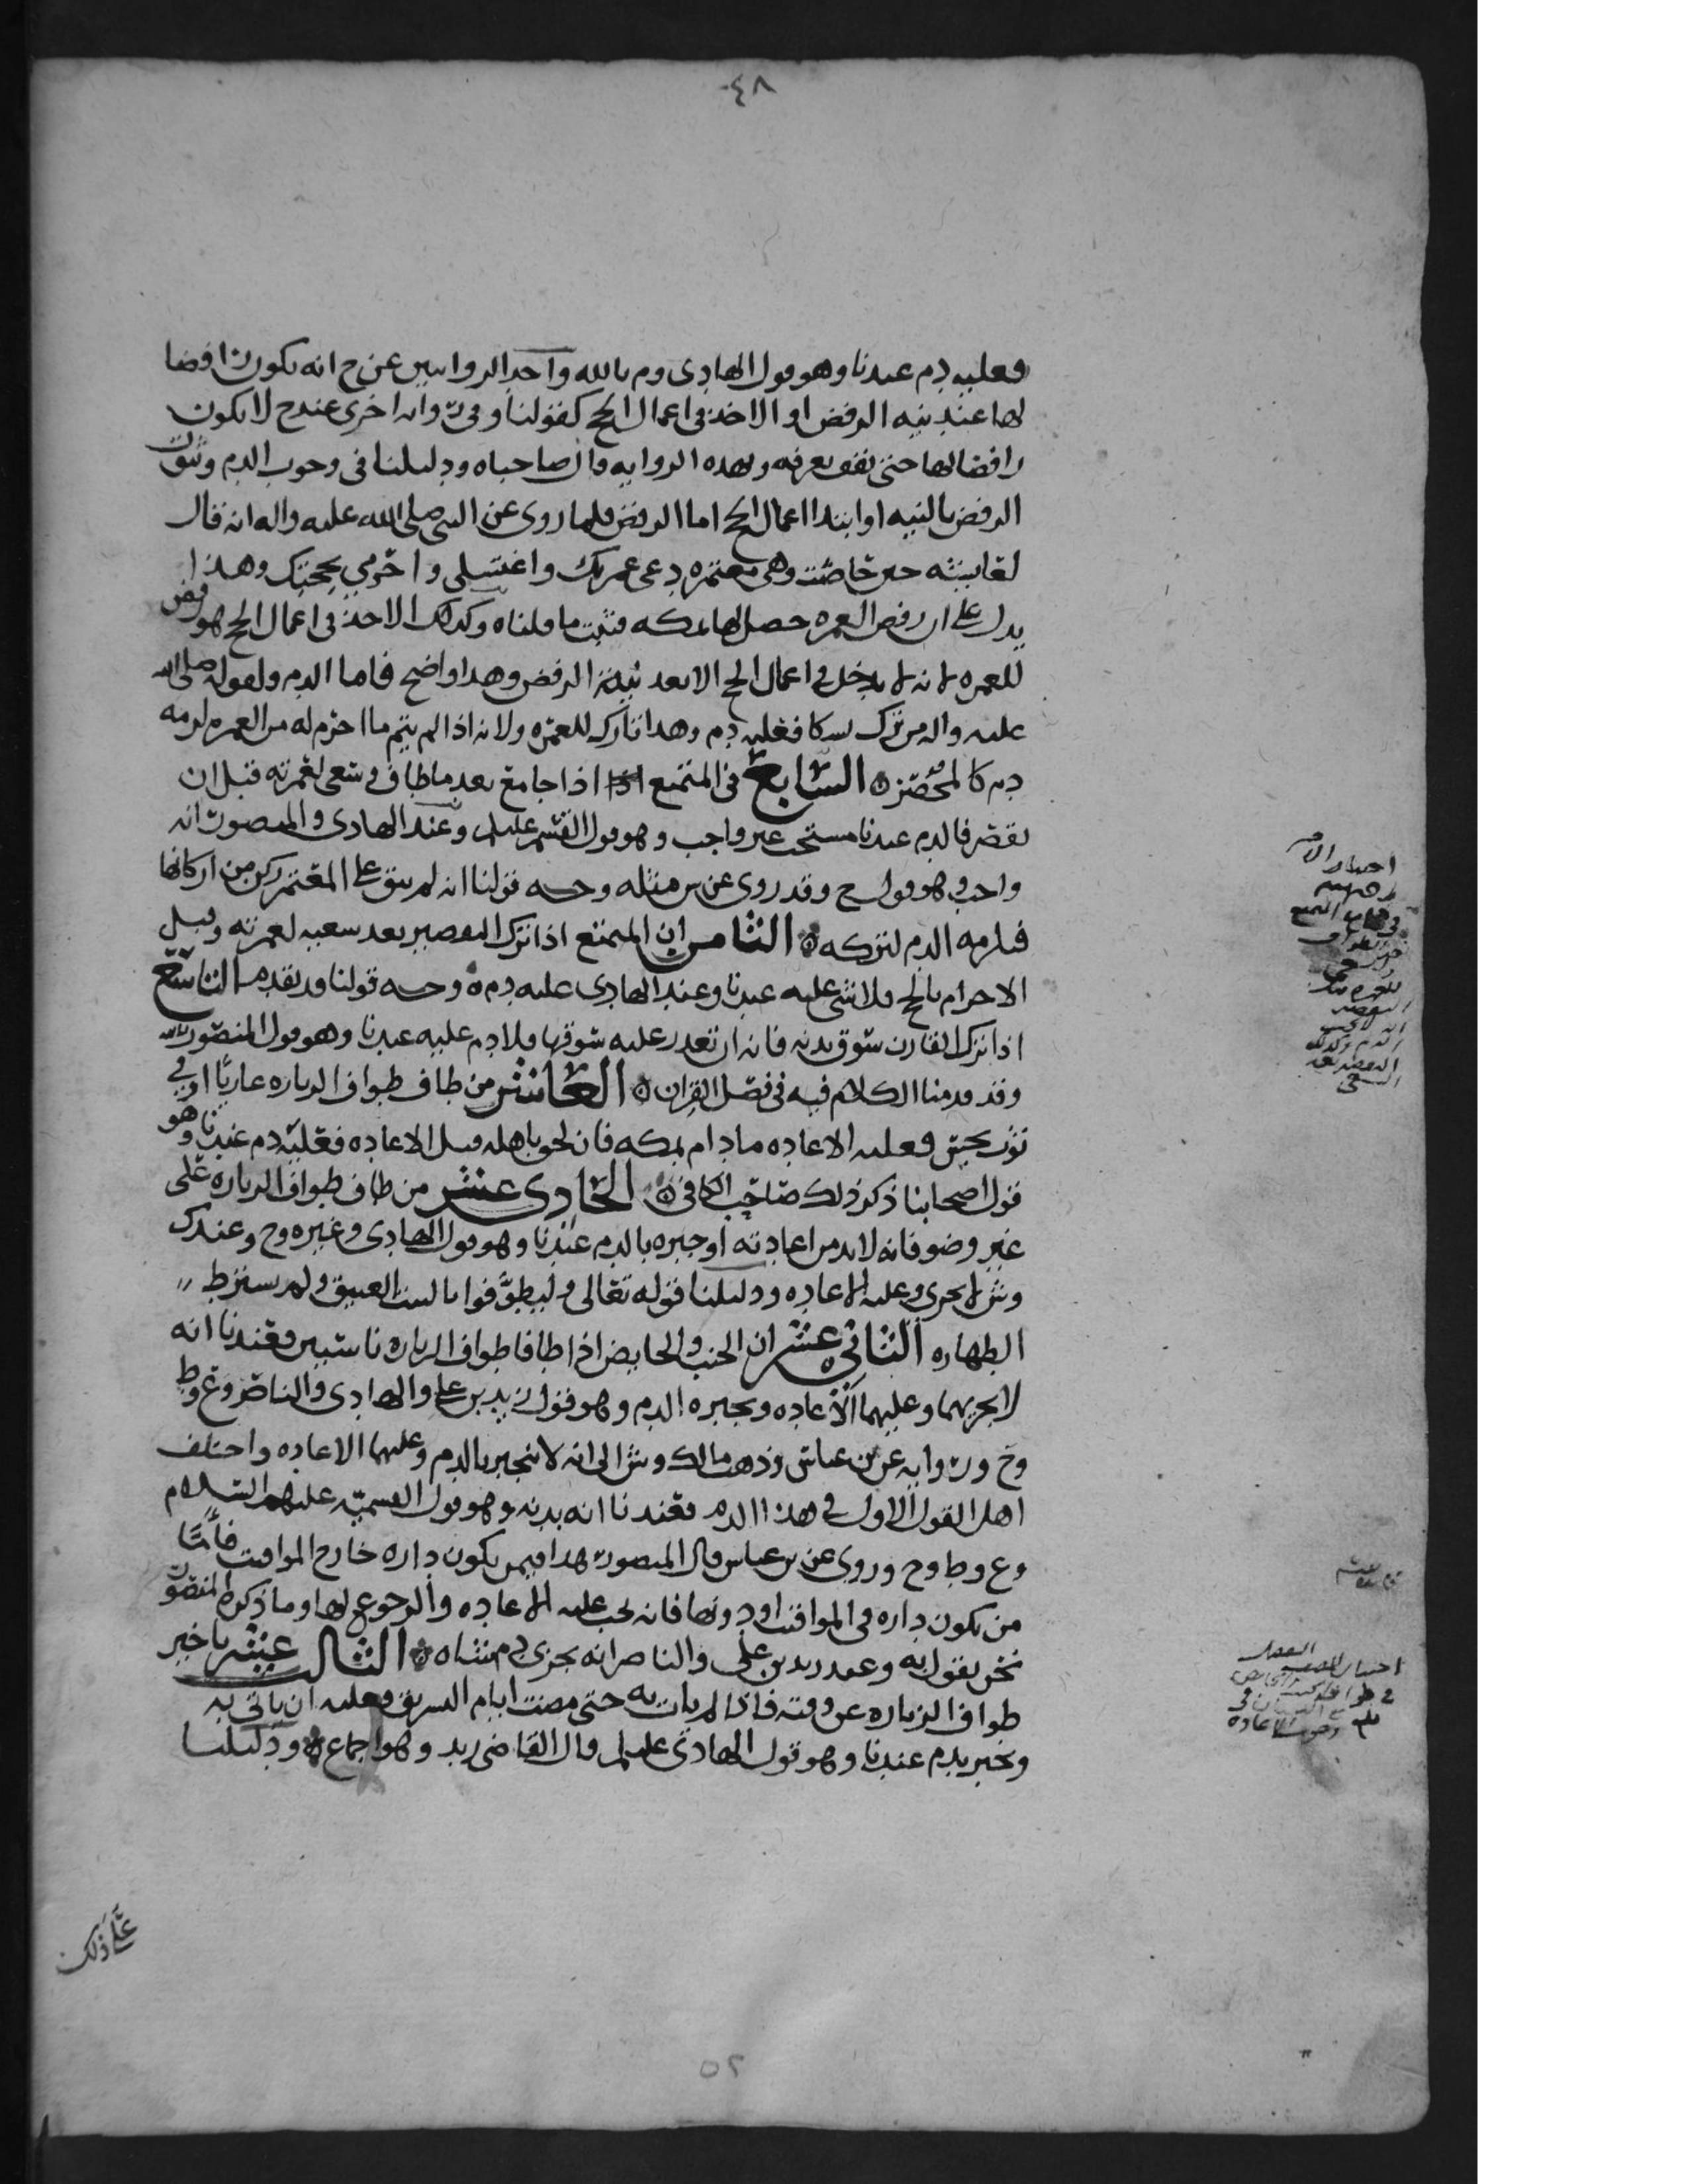 ٤٨
فعليه دم عندنا وهو قول الهادي وم بالله واحد الروايتين عن ح انه يكون رافضا
لها عند نيه الرفض او الاخذ في اعمال الحج كقولنا وفي روايه اخرى عند ح لا يكون
رافضا لها حتى يقف بعرفه وبهذه الروايه قال صاحباه ودليلنا في وجوب الدم وثبوت
الرفض بالنيه او ابتدا اعمال الحج اما الرفض فلما روى عن النبي صلى الله عليه واله انه قال
لعايشه حين حاضت وهي معتمره دعي عمرتك واغتسلي واحرمي بحجتك وهذا
يدل على ان رفض العمره حصل لها بمكه فثبت ما قلناه وكذلك الاخذ في اعمال الحج هو رفض
للعمره لانه لا يدخل في اعمال الحج الا بعد نيه الرفض وهذا واضح فاما الدم ولقوله صلى الله
عليه واله من ترك نسكا فعليه دم وهذا تارك للعمره ولانه اذا لم يتم ما احرم له من العمره لزمه
دم كالمحصر ه السابع في المتمتع اذا جامع بعد ما طاف وسعى لعمرته قبل ان
يقصر فالدم عندنا مستحب غير واجب وهو قول القسم عليلم وعند الهادي والمنصور انه
واجب وهو قول ح وقد روى عن س مثله وجه قولنا انه لم يبق على المعتمر ركن من اركانها
فيلزمه الدم لتركه ه الثامن ان المتمتع اذا ترك التقصير بعد سعيه لعمرته وقبل
الاحرام بالحج فلا شي عليه عندنا وعند الهادي عليه دم ه وجه قولنا قد تقدم التاسع
اذا ترك القارن سوق بدنه فانه ان تعذر عليه سوقها فلا دم عليه عندنا وهو قول المنصور بالله
وقد قدمنا الكلام فيه في فصل القران ه العاشر من طاف طواف الزياره عاريًا او في
ثوب نجس فعليه الاعاده ما دام بمكه فان لحق باهله قبل الاعاده فعليه دم عندنا وهو
قول اصحابنا ذكر ذلك صاحب الكافي ه الحادي عشر من طاف طواف الزياره على
غير وضو فانه لا بد من اعادته او جبره بالدم عندنا وهو قول الهادي وغيره وح وعند ك
وش لا يجزي وعليه الاعاده ودليلنا قوله تعالى وليطوفوا بالبيت العتيق ولم يشترط
الطهاره الثاني عشر ان الجنب والحايض اذا طافا طواف الزياره ناسيين فعندنا انه
لا يجزيهما وعليهما الاعاده ويجبره الدم وهو قول زيد بن علي والهادي والناصر وع وط
وح وروايه عن بن عباس وذهب مالك وش الى انه لا ينجبر بالدم وعليهما الاعاده واختلف
اهل القول الاول في هذا الدم فعندنا انه بدنه وهو قول القسميه عليهم السلام
وع وط وح وروى عن بن عباس قال المنصور هذا فيمن يكون داره خارج المواقيت فأمّا
من يكون داره في المواقيت او دونها فانه يجب عليه الاعاده والرجوع لها وما ذكره المنصور
نحن نقول به وعند زيد بن علي والناصر انه يجزي دم شاه ه الثالث عشر تاخير
طواف الزياره عن وقته فاذا لم يات به حتى مضت ايام التشريق فعليه ان ياتي به
ويجبر بدم عندنا وهو قول الهادي عليلم قال القاضي زيد وهو اجماع ه ودليلنا
على ذلك
٥٢